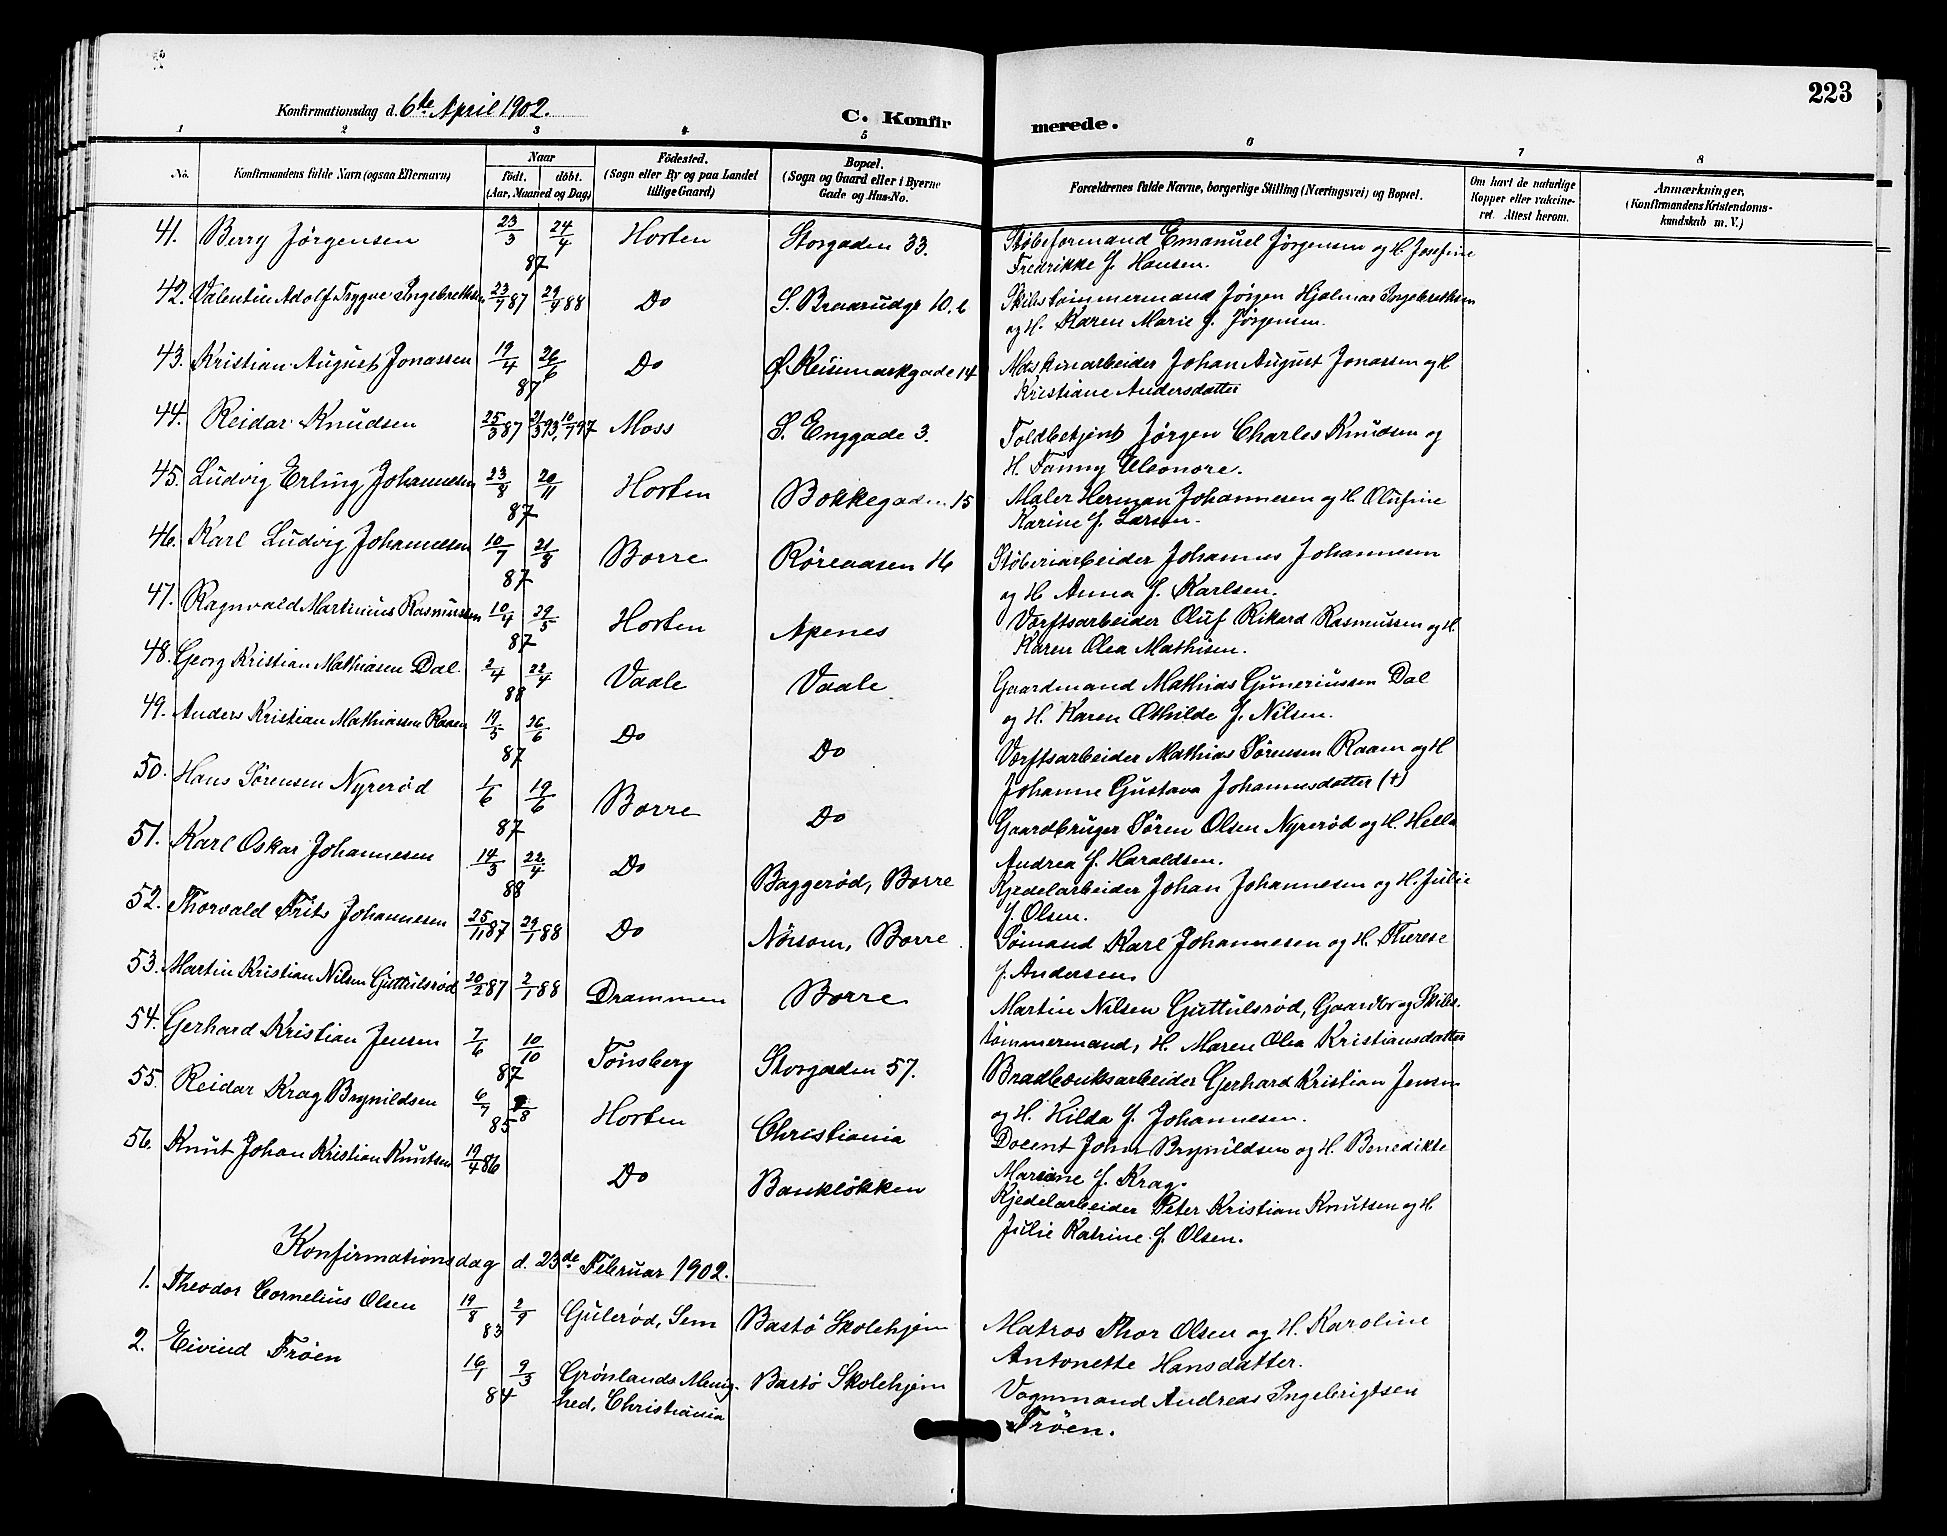 223
Konfirmationsdag d. 6te April 1902.
C. Konfirmerede.
1 2 3 4 5 6 7 8
No.
Konfirmandens fulde Navn (ogsaa Efternavn)
Naar
født. døbt.
(Aar, Maaned og Dag)
Fødested.
(Sogn eller By og paa Landet
tillige Gaard)
Bopæl.
(Sogn og Gaard eller i Byerne
Gade og Hus-No.
Forældrenes fulde Navne, borgerlige Stilling (Næringsvei) og Bopæl.
Om havt de naturlige
Kopper eller vakcine-
ret. Attest herom.
Anmærkninger.
(Konfirmandens Kristendoms-
kundskab m. V.)
41. Berry Jørgensen 23/3 24/4 87 Horten Storgaden 33. Støbeformand Emanuel Jørgensen og H. Josefine
Fredrikke f. Hansen.
42. Valentin Adolf Trygve Ingebrethsen 23/7 87 29/4 88 Do S. Braarudgt 10. b Skibstømmermand Jørgen Hjalmar Ingebrethsen
og H. Karen Marie f. Jørgensen.
43. Kristian August Jonassen 19/4 26/6 87 Do Ø. Keisemarkgade 14 Maskinarbeider Johan August Jonassen og H
Kristiane Andersdatter
44. Reidar Knudsen 25/3 87 21/3 93, 10/7 97 Moss S. Enggade 3. Toldbetjent Jørgen Charles Knudsen og
H. Fanny Eleonore.
45. Ludvig Erling Johannesen 23/8 20/11 87 Horten Bokkegaden 15 Maler Herman Johannesen og H. Olufine
Karine f. Larsen.
46. Karl Ludvig Johannesen 10/7 21/8 87 Borre Røreaasen 16 Støberiarbeider Johannes Johannesen
og H. Anna f. Karlsen.
47. Ragnvald Martinius Rasmussen 10/4 29/5 87 Horten Apenes Værftsarbeider Oluf Rikard Rasmussen og H.
Karen Olea Mathisen.
48. Georg Kristian Mathiasen Dal 2/4 22/4 88 Vaale Vaale Gaardmand Mathias Guneriussen Dal
og H. Karen Othilde f. Nilsen.
49. Anders Kristian Mathiassen Raaen 19/5 26/6 87 Do Do Værftsarbeider Mathias Sørensen Raaen og H
Johanne Gustava Johannesdatter (†)
50. Hans Sørensen Nyrerød 1/6 19/6 87 Borre Do Gaardbruger Søren Olsen Nyrerød og H. Helle
Andrea f. Haraldsen.
51. Karl Oskar Johannesen 14/3 22/4 88 Do Baggerød, Borre Kjedelarbeider Johan Johannesen og H. Julie
f. Olsen.
52. Thorvald Frits Johannesen 25/11 87 29/1 88 Do Nørsom, Borre Sømand Karl Johannesen og H. Therese
f. Andersen.
53. Martin Kristian Nilsen Guttulsrød 20/2 87 2/1 88 Drammen Borre Martin Nilsen Guttulsrød, Gaardbr og Skibs-
tømmermand, H. Maren Olea Kristiansdatter
54. Gerhard Kristian Jensen 7/6 10/10 87 Tønsberg Storgaden 57. Bradbænksarbeider Gerhard Kristian Jensen
og H. Hilda f. Johannesen.
55. Reidar Krag Brynildsen 6/7 9/8 85 Horten Christiania Docent John Brynildsen og H. Benedikte
Mariane f. Krag.
56. Knut Johan Kristian Knutsen 19/4 86 Do Bankløkken Kjedelarbeider Peter Kristian Knutsen og H.
Julie Katrine f. Olsen.
Konfirmationsdag d. 23de Februar 1902.
1. Theodor Cornelius Olsen 19/8 2/9 83 Gulerød, Sem Bastø Skolehjem Matros Thor Olsen og H. Karoline
Antonette Hansdatter.
2. Eivind Frøen 16/1 9/3 84 Grønlands Menig-
hed, Christiania Bastø Skolehjem Vognmand Andreas Ingebrigtsen
Frøen.